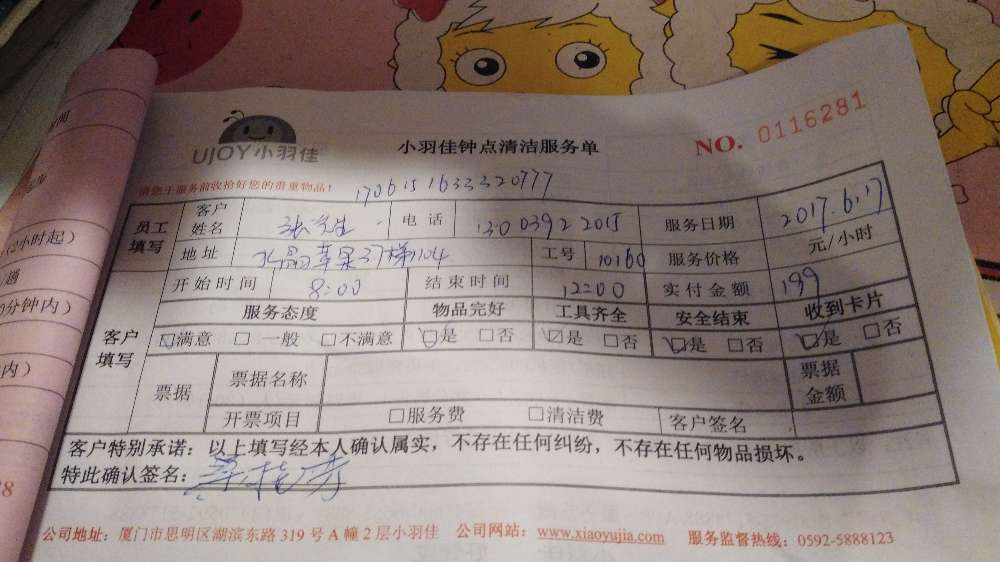 UJOY小羽佳
小羽佳钟点清洁服务单
NO. 0116281
请您于服务前收拾好您的贵重物品!
1706151633320777
员工填写 客户姓名 张先生 电话 13003922015 服务日期 2017.6.17
地址 水晶苹果 梯1104 工号 10160 服务价格 元/小时
开始时间 8:00 结束时间 12:00 实付金额 199
客户填写 服务态度 物品完好 工具齐全 安全结束 收到卡片
☑满意 □一般 □不满意 ☑是 □否 ☑是 □否 ☑是 □否 ☑是 □否
票据 票据名称 票据金额
开票项目 □服务费 □清洁费 客户签名
客户特别承诺:以上填写经本人确认属实,不存在任何纠纷,不存在任何物品损坏。
特此确认签名:
公司地址:厦门市思明区湖滨东路 319 号 A 幢 2 层小羽佳 公司网站:www.xiaoyujia.com 服务监督热线:0592-5888123
(2小时起)
分钟内)
内)